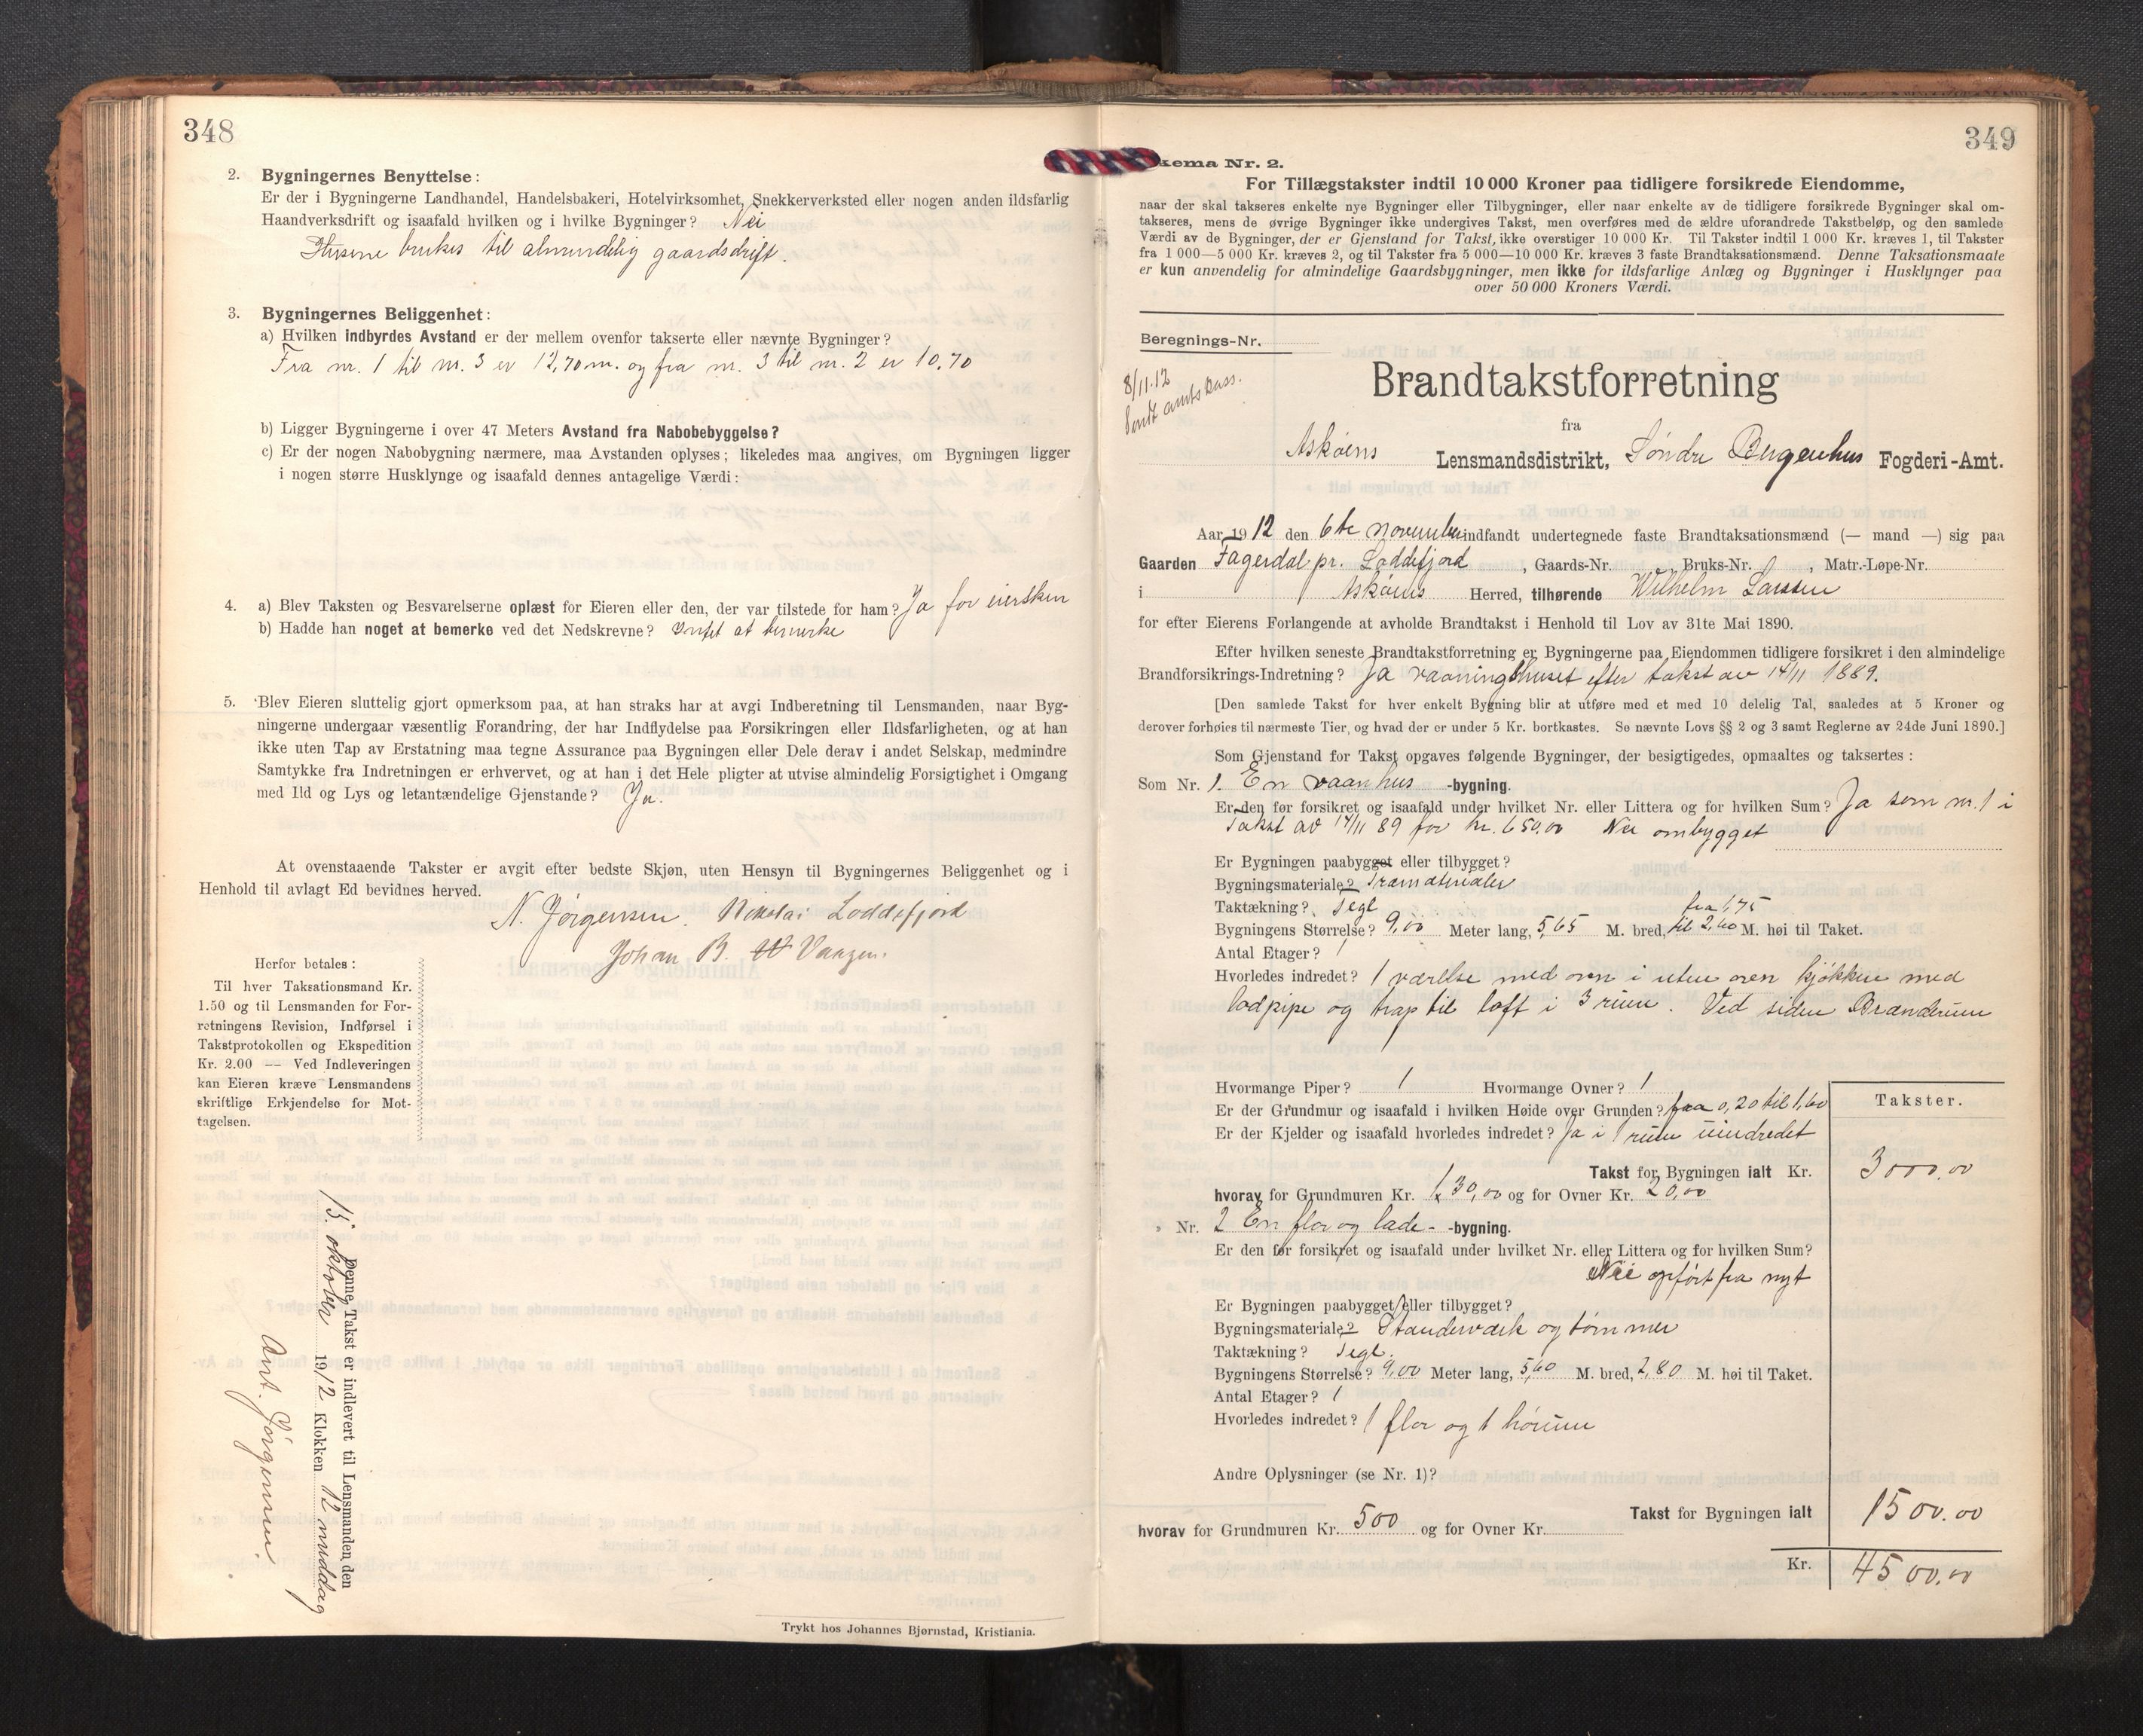 348
2. Bygningernes Benyttelse:
Er der i Bygningerne Landhandel, Handelsbakeri, Hotelvirksomhet, Snekkerverksted eller nogen anden ildsfarlig
Haandverksdrift og isaafald hvilken og i hvilke Bygninger? Nei
Husene brukes til almindelig gaardsdrift.
3. Bygningernes Beliggenhet:
a) Hvilken indbyrdes Avstand er der mellem ovenfor takserte eller nævnte Bygninger?
Fra nr. 1 til nr. 3 er 12,70 m. og fra nr. 3 til nr. 2 er 10,70
b) Ligger Bygningerne i over 47 Meters Avstand fra Nabobebyggelse?
c) Er der nogen Nabobygning nærmere, maa Avstanden oplyses; likeledes maa angives, om Bygningen ligger
i nogen større Husklynge og isaafald dennes antagelige Værdi:
4. a) Blev Taksten og Besvarelserne oplæst for Eieren eller den, der var tilstede for ham? Ja for eiersken
b) Hadde han noget at bemerke ved det Nedskrevne? Intet at bemerke
5. Blev Eieren sluttelig gjort opmerksom paa, at han straks har at avgi Indberetning til Lensmanden, naar Byg-
ningerne undergaar væsentlig Forandring, der har Indflydelse paa Forsikringen eller Ildsfarligheten, og at han
ikke uten Tap av Erstatning maa tegne Assurance paa Bygningen eller Dele derav i andet Selskap, medmindre
Samtykke fra Indretningen er erhvervet, og at han i det Hele pligter at utvise almindelig Forsigtighet i Omgang
med Ild og Lys og letantændelige Gjenstande? Ja.
At ovenstaaende Takster er avgit efter bedste Skjøn, uten Hensyn til Bygningernes Beliggenhet og i
Henhold til avlagt Ed bevidnes herved.
N. Jørgensen. Nikolai Loddefjord
Johan B. Vaagen.
Herfor betales:
Til hver Taksationsmand Kr.
1.50 og til Lensmanden for For-
retningens Revision, Indførsel i
Takstprotokollen og Ekspedition
Kr. 2.00 — Ved Indleveringen
kan Eieren kræve Lensmandens
skriftlige Erkjendelse for Mot-
tagelsen.
Denne Takst er indlevert til Lensmanden den
15. oktober 1912 Klokken 12 middag
Ant. Jørgensen.
Trykt hos Johannes Bjørnstad, Kristiania.
349
kema Nr. 2.
For Tillægstakster indtil 10 000 Kroner paa tidligere forsikrede Eiendomme,
naar der skal takseres enkelte nye Bygninger eller Tilbygninger, eller naar enkelte av de tidligere forsikrede Bygninger skal om-
takseres, mens de øvrige Bygninger ikke undergives Takst, men overføres med de ældre uforandrede Takstbeløp, og den samlede
Værdi av de Bygninger, der er Gjenstand for Takst, ikke overstiger 10 000 Kr. Til Takster indtil 1 000 Kr. kræves 1, til Takster
fra 1 000—5 000 Kr. kræves 2, og til Takster fra 5 000—10 000 Kr. kræves 3 faste Brandtaksationsmænd. Denne Taksationsmaate
er kun anvendelig for almindelige Gaardsbygninger, men ikke for ildsfarlige Anlæg og Bygninger i Husklynger paa
over 50 000 Kroners Værdi.
Beregnings-Nr.
8/11.12
Sendt amts kass.
Brandtakstforretning
fra
Askøens Lensmandsdistrikt, Søndre Bergenhus Fogderi-Amt.
Aar 1912 den 6te november indfandt undertegnede faste Brandtaksationsmænd (— mand —) sig paa
Gaarden Fagerdal pr. Loddefjord, Gaards-Nr. , Bruks-Nr. , Matr.-Løpe-Nr.
i Askøens Herred, tilhørende Wilhelm Larsen
for efter Eierens Forlangende at avholde Brandtakst i Henhold til Lov av 31te Mai 1890.
Efter hvilken seneste Brandtakstforretning er Bygningerne paa Eiendommen tidligere forsikret i den almindelige
Brandforsikrings-Indretning? Ja vaaningshuset efter takst av 14/11 1889.
[Den samlede Takst for hver enkelt Bygning blir at utføre med et med 10 delelig Tal, saaledes at 5 Kroner og
derover forhøies til nærmeste Tier, og hvad der er under 5 Kr. bortkastes. Se nævnte Lovs §§ 2 og 3 samt Reglerne av 24de Juni 1890.]
Som Gjenstand for Takst opgaves følgende Bygninger, der besigtigedes, opmaaltes og taksertes:
Som Nr. 1. En vaanhus -bygning.
Er den før forsikret og isaafald under hvilket Nr. eller Littera og for hvilken Sum? Ja som nr. 1 i
Takst av 14/11 89 for kr. 650,00 Nu ombygget
Er Bygningen paabygget eller tilbygget?
Bygningsmateriale? Træmaterialer
Taktækning? Tegl fra 1,75
Bygningens Størrelse? 9,00 Meter lang, 5,65 M. bred, til 2,40 M. høi til Taket.
Antal Etager? 1
Hvorledes indredet? 1 værelse med oven i uten oven kjøkken med
lodpipe og trap til loft i 3 rum. Ved siden Brænderum
Hvormange Piper? 1 Hvormange Ovner? 1
Er der Grundmur og isaafald i hvilken Høide over Grunden? fra 0,20 til 1,60
Takster.
Er der Kjelder og isaafald hvorledes indredet? Ja i 1 rum uindredet
Takst for Bygningen ialt Kr. 3000,00
hvorav for Grundmuren Kr. 130,00 og for Ovner Kr. 20,00
" Nr. 2 En flor og lade- -bygning.
Er den før forsikret og isaafald under hvilket Nr. eller Littera og for hvilken Sum?
Nei opført fra nyt
Er Bygningen paabygget eller tilbygget?
Bygningsmateriale? Standerværk og tømmer
Taktækning? Tegl.
Bygningens Størrelse? 9,00 Meter lang, 5,60 M. bred, 2,80 M. høi til Taket.
Antal Etager? 1
Hvorledes indredet? 1 flor og 1 hørum
Andre Oplysninger (se Nr. 1)?
Takst for Bygningen ialt 1500.00
hvorav for Grundmuren Kr. 500 og for Ovner Kr.
Kr. 4500.00